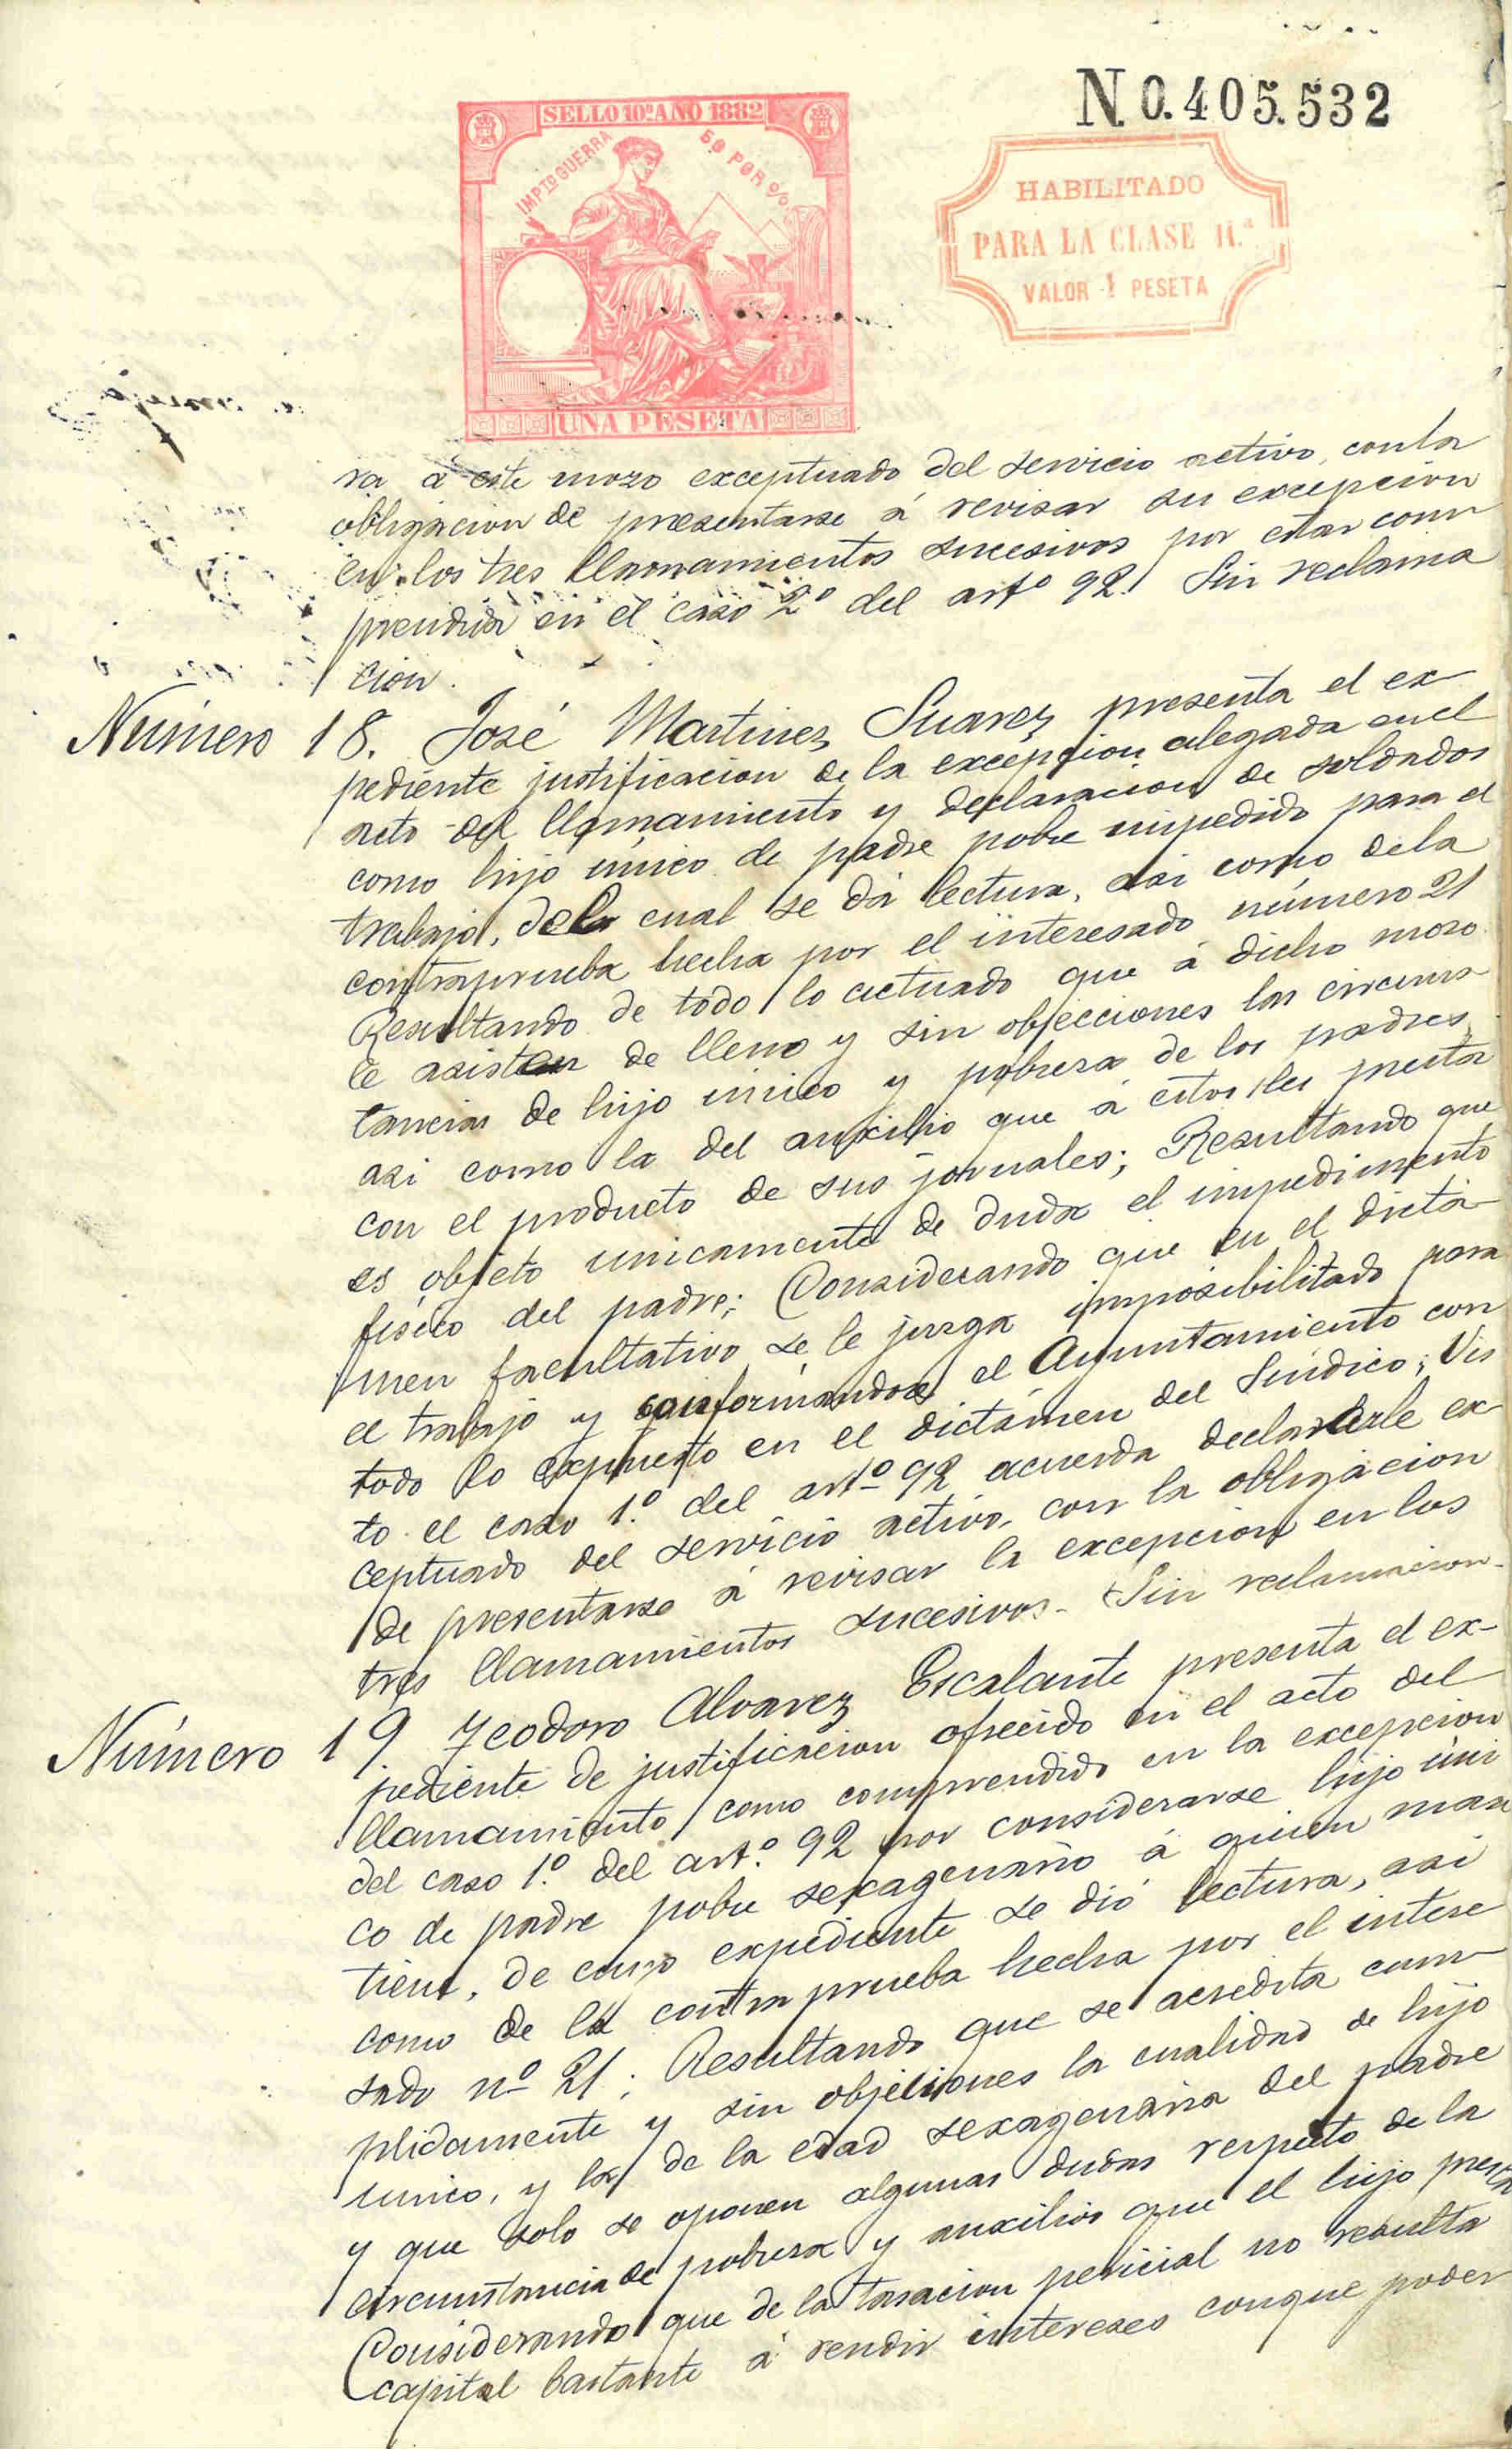 N. 0.405.532
SELLO 10º AÑO 1882
IMPTO GUERRA 50 POR %
UNA PESETA
HABILITADO
PARA LA CLASE 11.ª
VALOR 1 PESETA
ra á este mozo exceptuado del servicio activo, con la
obligacion de presentarse á revisar su excepcion
en los tres llamamientos sucesivos por estar com
prendida en el caso 2º del artº 92. Sin reclama
cion.
Número 18. José Martinez Suarez presenta el ex-
pediente justificacion de la excepcion alegada en el
acto del llamamiento y declaracion de soldados
como hijo único de padre pobre impedido para el
trabajo, de la cual se dá lectura, asi como de la
contraprueba hecha por el interesado número 21
Resultando de todo lo actuado que á dicho mozo
le asisten de lleno y sin objecciones las circuns
tancias de hijo único y pobreza de los padres
asi como la del auxilio que á estos les presta
con el producto de sus jornales; Resultando que
es objeto unicamente de duda el impedimento
físico del padre; Considerando que en el dictá-
men facultativo se le juzga imposibilitado para
el trabajo y conformandose el Ayuntamiento con
todo lo expuesto en el dictámen del Síndico; Vis
to el caso 1.º del artº 92 acuerda declararle ex-
ceptuado del servicio activo, con la obligacion
de presentarse á revisar la excepcion en los
tres llamamientos sucesivos. Sin reclamacion.
Número 19 Teodoro Alvarez Escalante presenta el ex-
pediente de justificacion ofrecido en el acto del
llamamiento como comprendido en la excepcion
del caso 1.º del art.º 92 por considerarse hijo úni
co de padre pobre sexagenario á quien man
tiene, de cuyo expediente se dió lectura, asi
como de la contraprueba hecha por el intere
sado nº 21; Resultando que se acredita cum-
plidamente y sin objeciones la cualidad de hijo
unico, y la de la edad sexagenaria del padre
y que solo se oponen algunas dudas respecto de la
circunstancia de pobreza y auxilios que el hijo presta
Considerando que de la tasacion pericial no resulta
capital bastante á rendir intereses conque poder